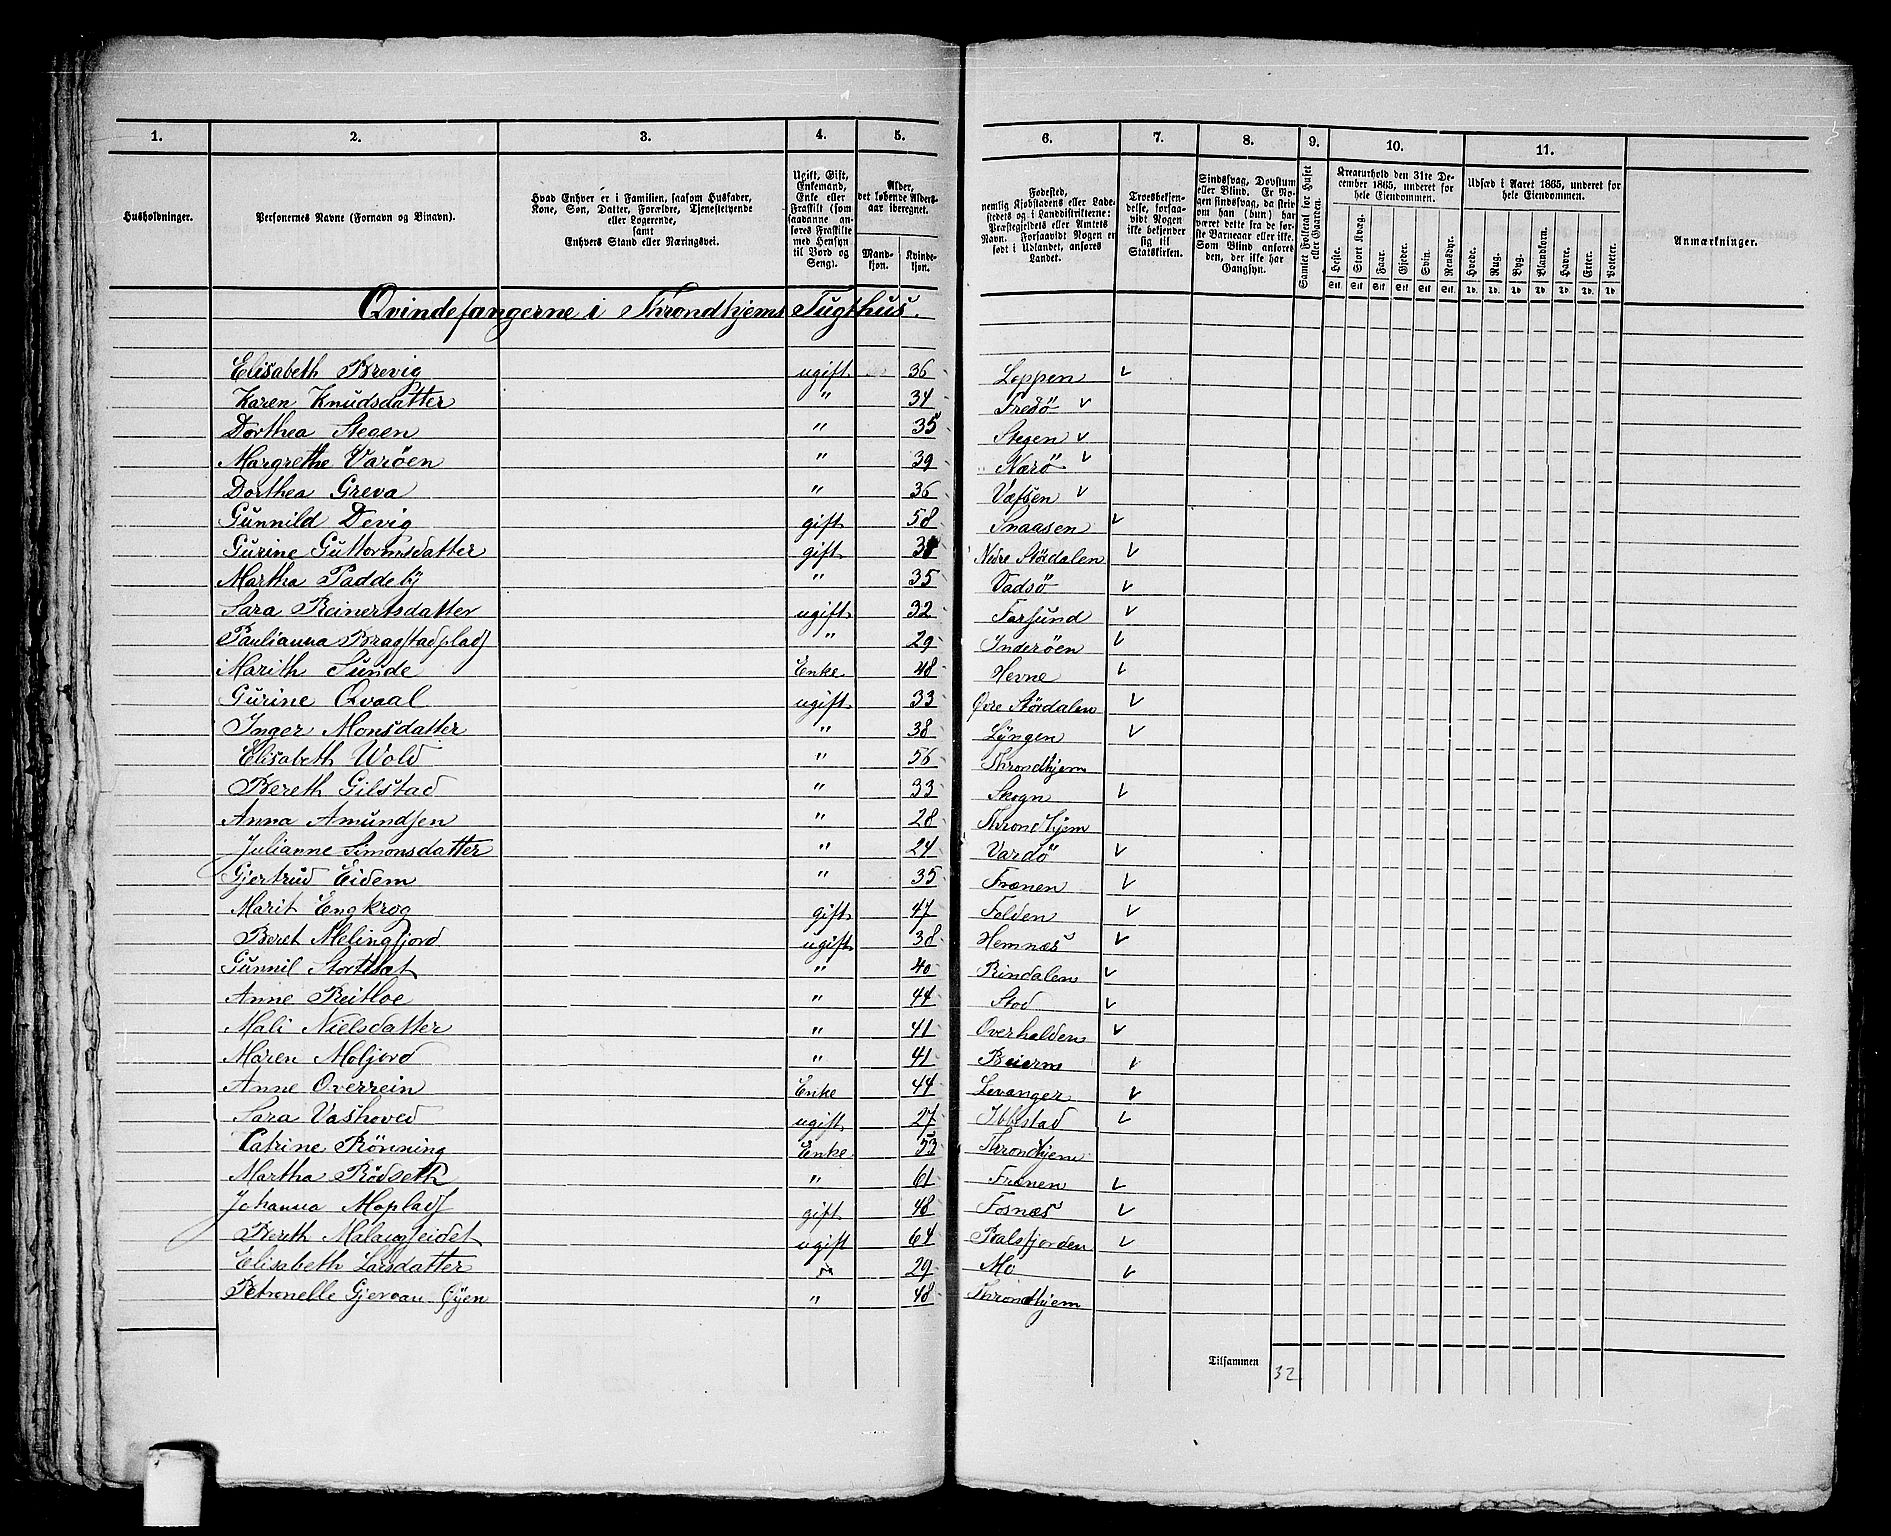 1. 2. 3. 4. 5. 6. 7. 8. 9. 10. 11.
Husholdninger.
Personernes Navne (Fornavn og Binavn).
Hvad Enhver er i Familien, saasom Husfader, Kone, Søn, Datter, Forældre, Tjenestetyende eller Logerende, samt Enhvers Stand eller Næringsvei.
Ugift, Gift, Enkemand, Enke eller Fraskilt (som saadanne anføres Fraskilte med Hensyn til Bord og Seng).
Alder, det løbende Aldersaar iberegnet.
Mandkjøn. Kvindekjøn.
Fødested, nemlig Kjøbstadens eller Ladestedets og i Landdistrikterne: Præstegjeldets eller Amtets Navn. Forsaavidt Nogen er født i Udlandet, anføres Landet.
Troesbekjendelse, forsaavidt Nogen ikke bekjender sig til Statskirken.
Sindssvag, Døvstum eller Blind. Er Nogen sindssvag, da skrives om han (hun) har været dette fra de første Barneaar eller ikke. Som Blind anføres den, der ikke har Gangsyn.
Samlet Folketal for Huset eller Gaarden.
Kreaturhold den 31te December 1865, underet for hele Eiendommen.
Heste. Stort Kvæg. Faar. Gjeder. Svin. Rensdyr.
Udsæd i Aaret 1865, underet for hele Eiendommen.
Hvede. Rug. Byg. Blandkorn. Havre. Erter. Poteter.
Anmærkninger.
Stk. Stk. Stk. Stk. Stk. Stk. Td. Td. Td. Td. Td. Td. Td.
Qvindefangerne i Throndhjems Tugthus.
Elisabeth Brevig ugift 36 Loppen
Karen Knudsdatter " 34 Fredö
Dorthea Stegen " 35 Stegen
Margrethe Varöen " 39 Nærö
Dorthea Greva " 36 Væfsen
Gunnild Devig gift 58 Snaasen
Gurine Guttormsdatter gift Nedre Stördalen
Martha Paddeby " 35 Vadsö
Sara Reinertsdatter ugift 32 Farsund
Paulianna Bragstadplads " 29 Inderöen
Marith Sunde Enke 48 Hevne
Gurine Qvaal ugift 33 Øvre Stördalen
Inger Monsdatter " 38 Lyngen
Elisabeth Wold " 56 Throndhjem
Bereth Gilstad " 33 Skogn
Anna Amundsen " 28 Throndhjem
Julianne Simonsdatter " 24 Vardö
Gjertrud Eidem " 35 Frænen
Marit Engkrog gift 47 Folden
Beret Melingfjord ugift 38 Hemnæs
Gunnil Stortlsæt " 40 Rindalen
Anne Reitloe " 44 Stod
Mali Nielsdatter " 41 Overhalden
Maren Moljord " 41 Beiern
Anne Overrein Enke 44 Levanger
Sara Vashoved ugift 27 Ibbestad
Catrine Rönning Enke 53 Throndhjem
Martha Rödseth " 61 Frænen
Johanna Moplads gift 48 Fosnæs
Bereth Malangseidet ugift 64 Balsfjorden
Elisabeth Larsdatter " 29 Mo
Petronelle Gjervan Öyen " 48 Throndhjem
Tilsammen 32